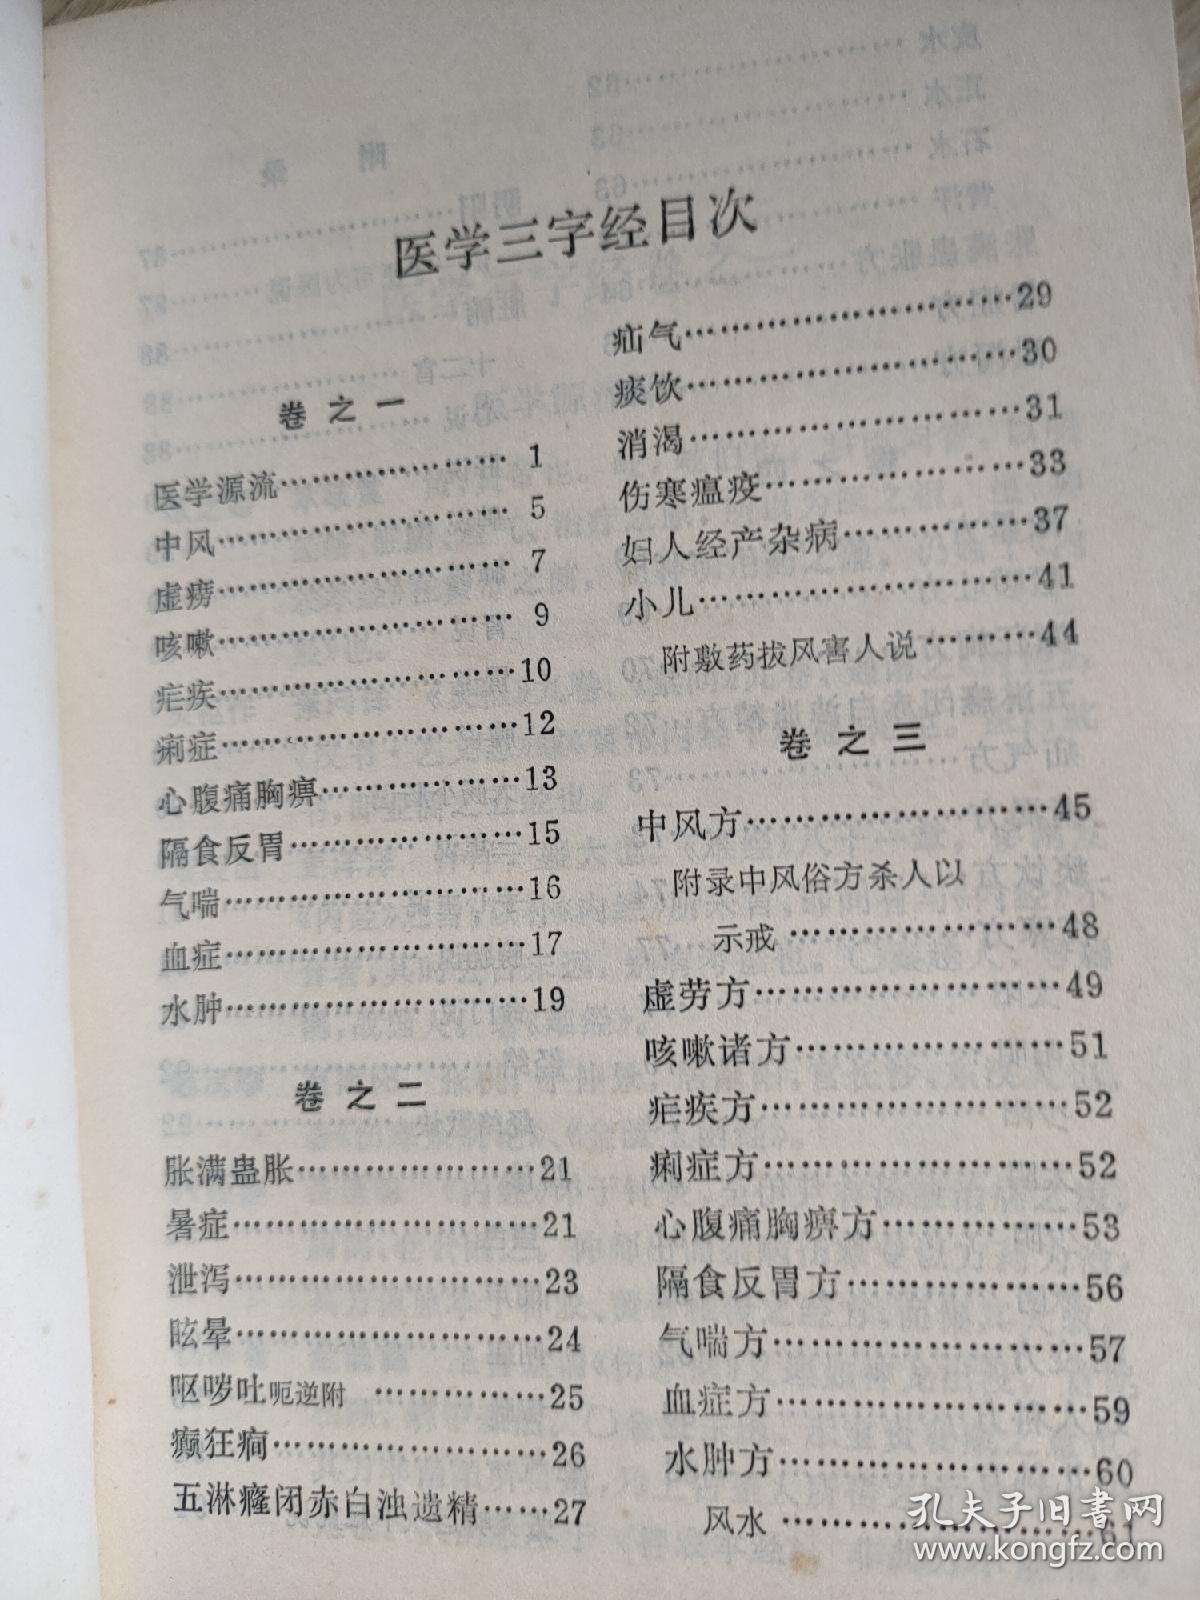 医学三字经目次
卷之一
医学源流…………………… 1
中风………………………… 5
虚痨………………………… 7
咳嗽………………………… 9
疟疾…………………………10
痢症…………………………12
心腹痛胸痹…………………13
隔食反胃……………………15
气喘…………………………16
血症…………………………17
水肿…………………………19
卷之二
胀满蛊胀……………………21
暑症…………………………21
泄泻…………………………23
眩晕…………………………24
呕哕吐呃逆附 ……………25
癫狂痫………………………26
五淋癃闭赤白浊遗精……27
疝气…………………………29
痰饮…………………………30
消渴…………………………31
伤寒瘟疫……………………33
妇人经产杂病………………37
小儿…………………………41
附敷药拔风害人说………44
卷之三
中风方………………………45
附录中风俗方杀人以
示戒 ……………………48
虚劳方………………………49
咳嗽诸方……………………51
疟疾方………………………52
痢症方………………………52
心腹痛胸痹方………………53
隔食反胃方…………………56
气喘方………………………57
血症方………………………59
水肿方………………………60
风水 ………………………61
孔夫子旧书网
www.kongfz.com